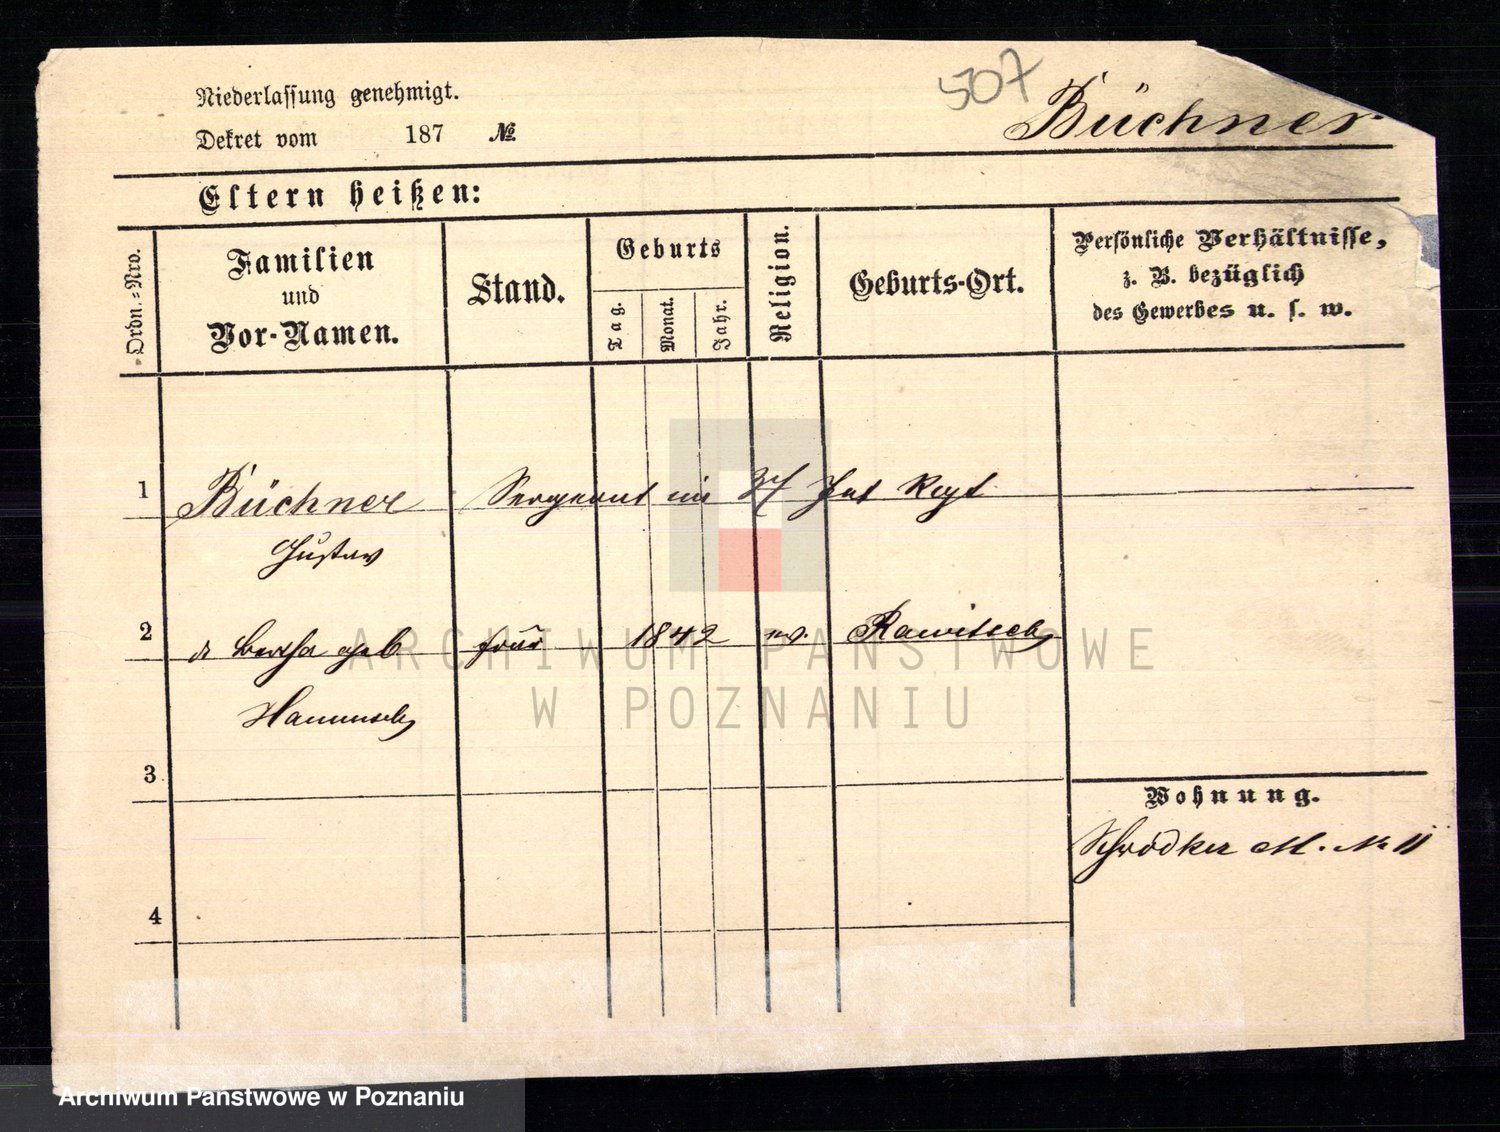 507
Büchner
Niederlassung genehmigt.
Dekret vom 187 №
Eltern heißen:
Ordn.=Nro.
Familien
und
Vor-Namen.
Stand.
Geburts
Tag.
Monat.
Jahr.
Religion.
Geburts-Ort.
Persönliche Verhältnisse,
z. B. bezüglich
des Gewerbes u. s. w.
1 Büchner Sergeant im 37 Inf Regt
Gustav
2 Bertha geb frau 1842 ev. Rawitsch
3
Wohnung.
Schrodker M. Nr 11
4
ARCHIWUM PAŃSTWOWE
W POZNANIU
Archiwum Państwowe w Poznaniu